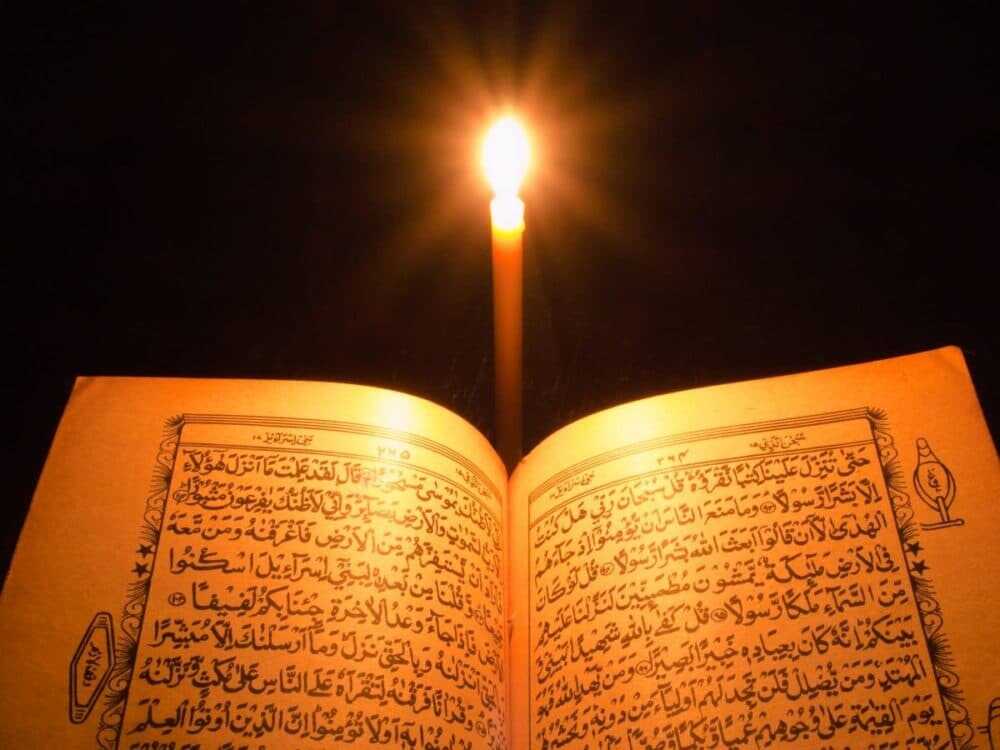 سُبْحٰنَ الَّذِيْٓ ۱۵
۲۶۴
حَتّٰى تُنَزِّلَ عَلَيْنَا كِتٰبًا نَّقْرَؤُهٗ قُلْ سُبْحَانَ رَبِّيْ هَلْ كُنْتُ
اِلَّا بَشَرًا رَّسُوْلًا ۹۳ وَمَا مَنَعَ النَّاسَ اَنْ يُّؤْمِنُوْٓا اِذْ جَآءَهُمُ
الْهُدٰٓى اِلَّآ اَنْ قَالُوْٓا اَبَعَثَ اللّٰهُ بَشَرًا رَّسُوْلًا ۹۴ قُلْ لَّوْ كَانَ
فِي الْاَرْضِ مَلٰٓئِكَةٌ يَّمْشُوْنَ مُطْمَئِنِّيْنَ لَنَزَّلْنَا عَلَيْهِمْ
مِّنَ السَّمَآءِ مَلَكًا رَّسُوْلًا ۹۵ قُلْ كَفٰى بِاللّٰهِ شَهِيْدًۢا بَيْنِيْ وَ
بَيْنَكُمْ اِنَّهٗ كَانَ بِعِبَادِهٖ خَبِيْرًۢا بَصِيْرًا ۹۶ وَمَنْ يَّهْدِ اللّٰهُ فَهُوَ
الْمُهْتَدِ وَمَنْ يُّضْلِلْ فَلَنْ تَجِدَ لَهُمْ اَوْلِيَآءَ مِنْ دُوْنِهٖ وَنَحْشُرُهُمْ
يَوْمَ الْقِيٰمَةِ عَلٰى وُجُوْهِهِمْ عُمْيًا وَّبُكْمًا
بنی اسراءیل ۱۷
۲۶۵
يٰمُوْسٰى مَسْحُوْرًا ۱۰۱ قَالَ لَقَدْ عَلِمْتَ مَآ اَنْزَلَ هٰٓؤُلَآءِ
السَّمٰوٰتِ وَالْاَرْضِ بَصَآئِرَ وَاِنِّيْ لَاَظُنُّكَ يٰفِرْعَوْنُ مَثْبُوْرًا ۱۰۲
اَنْ يَّسْتَفِزَّهُمْ مِّنَ الْاَرْضِ فَاَغْرَقْنٰهُ وَمَنْ مَّعَهٗ
وَّقُلْنَا مِنْۢ بَعْدِهٖ لِبَنِيْٓ اِسْرَآءِيْلَ اسْكُنُوا
فَاِذَا جَآءَ وَعْدُ الْاٰخِرَةِ جِئْنَا بِكُمْ لَفِيْفًا ۱۰۴
اَنْزَلْنٰهُ وَبِالْحَقِّ نَزَلَ وَمَآ اَرْسَلْنٰكَ اِلَّا مُبَشِّرًا
وَقُرْاٰنًا فَرَقْنٰهُ لِتَقْرَاَهٗ عَلَى النَّاسِ عَلٰى مُكْثٍ وَّنَزَّلْنٰهُ
اٰمِنُوْا بِهٖٓ اَوْ لَا تُؤْمِنُوْا اِنَّ الَّذِيْنَ اُوْتُوا الْعِلْمَ